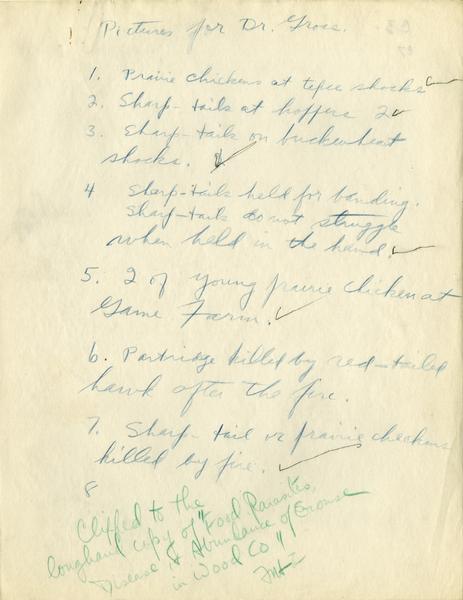 Pictures for Dr. Gross.
1. Prairie chickens at tepee shocks
2. Sharp-tails at hoppers 2
3. Sharp-tails on buckwheat
shocks.
4 Sharp-tails held for banding.
Sharp-tails do not struggle
when held in the hand.
5. 2 of young prairie chicken at
Game Farm.
6. Partridge killed by red-tailed
hawk after the fire.
7. Sharp-tail or prairie chickens
killed by fire.
8
Clipped to the
longhand copy of "Food Parasites,
Disease & Abundance of Grouse
in Wood Co"